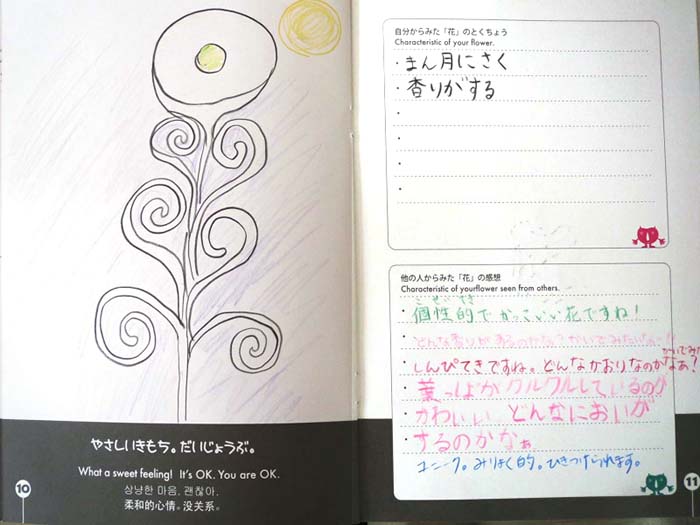 やさしいきもち。だいじょうぶ。
What a sweet feeling! It's OK. You are OK.
상냥한 마음. 괜찮아.
柔和的心情。没关系。
10
自分からみた「花」のとくちょう
Characteristic of your flower.
・まん月にさく
・香りがする
他の人からみた「花」の感想
Characteristic of yourflower seen from others.
こせいてき
個性的でかっこいい花ですね!
どんな香りがするのかな?かいでみたいなぁ
しんぴてきですね。どんなかおりなのかなあ?
葉っぱがクルクルしているのが
かわいい どんなにおいが
するのかなぁ
ユニーク。みりょく的。ひきつけられます。
11